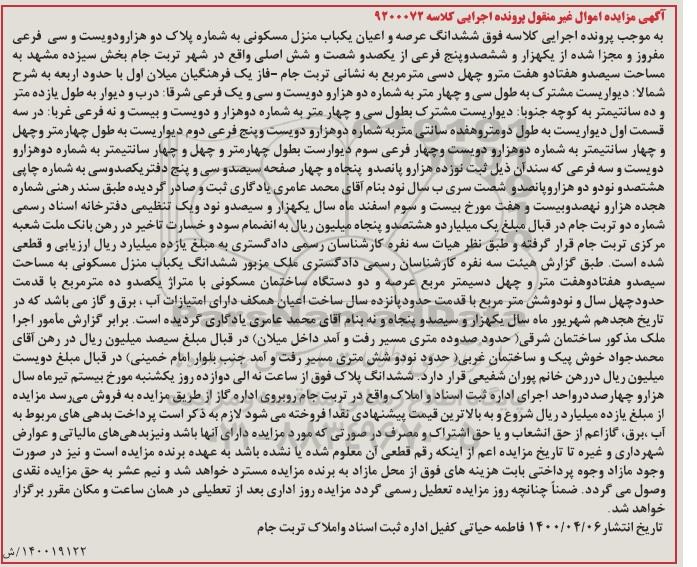 آگهی مزایده اموال غیر منقول پرونده اجرایی کلاسه ۹۲۰۰۰۷۲
به موجب پرونده اجرایی کلاسه فوق ششدانگ عرصه و اعیان یکباب منزل مسکونی به شماره پلاک دو هزارودویست و سی فرعی
مفروز و مجزا شده از یکهزار و ششصدوپنج فرعی از یکصدو شصت و شش اصلی واقع در شهر تربت جام بخش سیزده مشهد به
مساحت سیصدو هفتادو هفت مترو چهل دسی مترمربع به نشانی تربت جام -فاز یک فرهنگیان میلان اول با حدود اربعه به شرح
شمالا: دیواریست مشترک به طول سی و چهار متر به شماره دو هزارو دویست و سی و یک فرعی شرقا: درب و دیوار به طول یازده متر
و ده سانتیمتر به کوچه جنوبا: دیواریست مشترک بطول سی و چهار متر به شماره دوهزار و دویست و بیست و نه فرعی غربا: در سه
قسمت اول دیواریست به طول دومتروهفده سانتی متربه شماره دوهزارو دویست وپنج فرعی دوم دیواریست به طول چهارمتر وچهل
و چهار سانتیمتر به شماره دوهزارو دویست وچهار فرعی سوم دیوارست بطول چهارمتر و چهل و چهار سانتیمتر به شماره دوهزارو
دویست و سه فرعی که سندآن ذیل ثبت نوزده هزارو پانصدو پنجاه و چهار صفحه سیصدو سی و پنج دفتریکصدوسی به شماره چاپی
هشتصدو نودو دو هزاروپانصدو شصت سری ب سال نود بنام آقای محمد عامری یادگاری ثبت و صادر گردیده طبق سند رهنی شماره
هجده هزارو نهصدوبیست و هفت مورخ بیست و سوم اسفند ماه سال یکهزار و سیصدو نود ویک تنظیمی دفترخانه اسناد رسمی
شماره دو تربت جام در قبال مبلغ یک میلیارد و هشتصدو پنجاه میلیون ریال به انضمام سود و خسارت تاخیر در رهن بانک ملت شعبه
مرکزی تربت جام قرار گرفته و طبق نظر هیات سه نفره کارشناسان رسمی دادگستری به مبلغ یازده میلیارد ریال ارزیابی و قطعی
شده است. طبق گزارش هیئت سه نفره کارشناسان رسمی دادگستری ملک مزبور ششدانگ یکباب منزل مسکونی به مساحت
سیصدو هفتادوهفت متر و چهل دسیمتر مربع عرصه و دو دستگاه ساختمان مسکونی با متراژ یکصدو ده مترمربع با قدمت
حدودچهل سال و نودوشش متر مربع با قدمت حدودپانزده سال ساخت اعیان همکف دارای امتیازات آب ، برق و گاز می باشد که در
تاریخ هجدهم شهریور ماه سال یکهزار و سیصدو پنجاه و نه بنام آقای محمد عامری یادگاری گردیده است. برابر گزارش مأمور اجرا
ملک مذکور ساختمان شرقی( حدود صدوده متری مسیر رفت و آمد داخل میلان) در قبال مبلغ سیصد میلیون ریال در رهن آقای
محمدجواد خوش پیک و ساختمان غربی( حدود نودو شش متری مسیر رفت و آمد جنب بلوار امام خمینی) در قبال مبلغ دویست
میلیون ریال دررهن خانم پوران شفیعی قرار دارد. ششدانگ پلاک فوق از ساعت نه الی دوازده روز یکشنبه مورخ بیستم تیرماه سال
هزارو چهارصددرواحد اجرای اداره ثبت اسناد و املاک واقع در تربت جام روبروی اداره گاز از طریق مزایده به فروش می‌رسد مزایده
از مبلغ یازده میلیارد ریال شروع و به بالاترین قیمت پیشنهادی نقدا فروخته می شود لازم به ذکر است پرداخت بدهی های مربوط به
آب ،برق، گازاعم از حق انشعاب و یا حق اشتراک و مصرف در صورتی که مورد مزایده دارای آنها باشد ونیزبدهی‌های مالیاتی و عوارض
شهرداری و غیره تا تاریخ مزایده اعم از اینکه رقم قطعی آن معلوم شده یا نشده باشد به عهده برنده مزایده است و نیز در صورت
وجود مازاد وجوه پرداختی بابت هزینه های فوق از محل مازاد به برنده مزایده مسترد خواهد شد و نیم عشر به حق مزایده نقدی
وصول می گردد. ضمناً چنانچه روز مزایده تعطیل رسمی گردد مزایده روز اداری بعد از تعطیلی در همان ساعت و مکان مقرر برگزار
خواهد شد.
تاریخ انتشار۱۴۰۰/۰۴/۰۶ فاطمه حیاتی کفیل اداره ثبت اسناد واملاک تربت جام
۱۴۰۰۱۹۱۲۲/ش